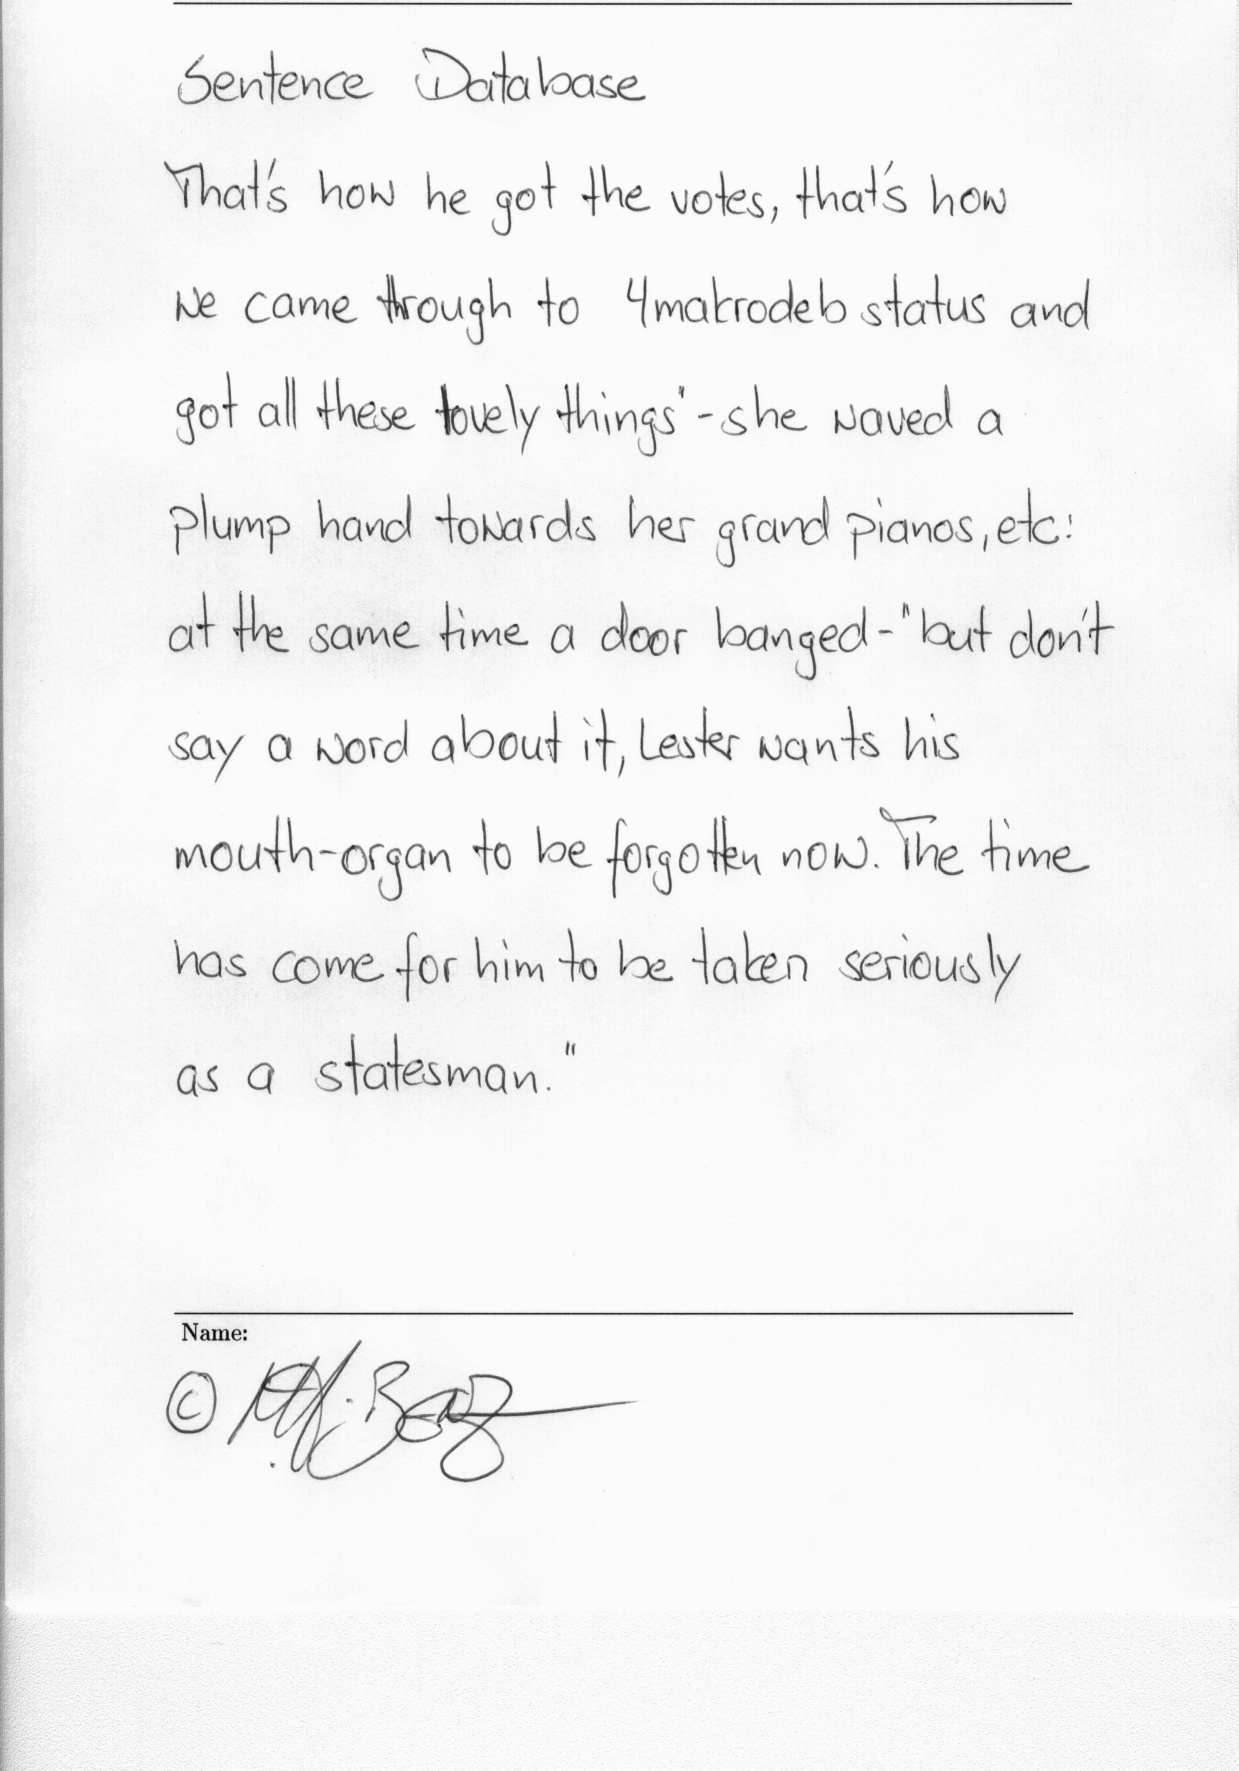 Sentence Database
That's how he got the votes, that's how
we came through to 4makrodeb status and
got all these lovely things" - she waved a
plump hand towards her grand pianos, etc:
at the same time a door banged - "but don't
say a word about it, Lester wants his
mouth-organ to be forgotten now. The time
has come for him to be taken seriously
as a statesman."
Name:
©